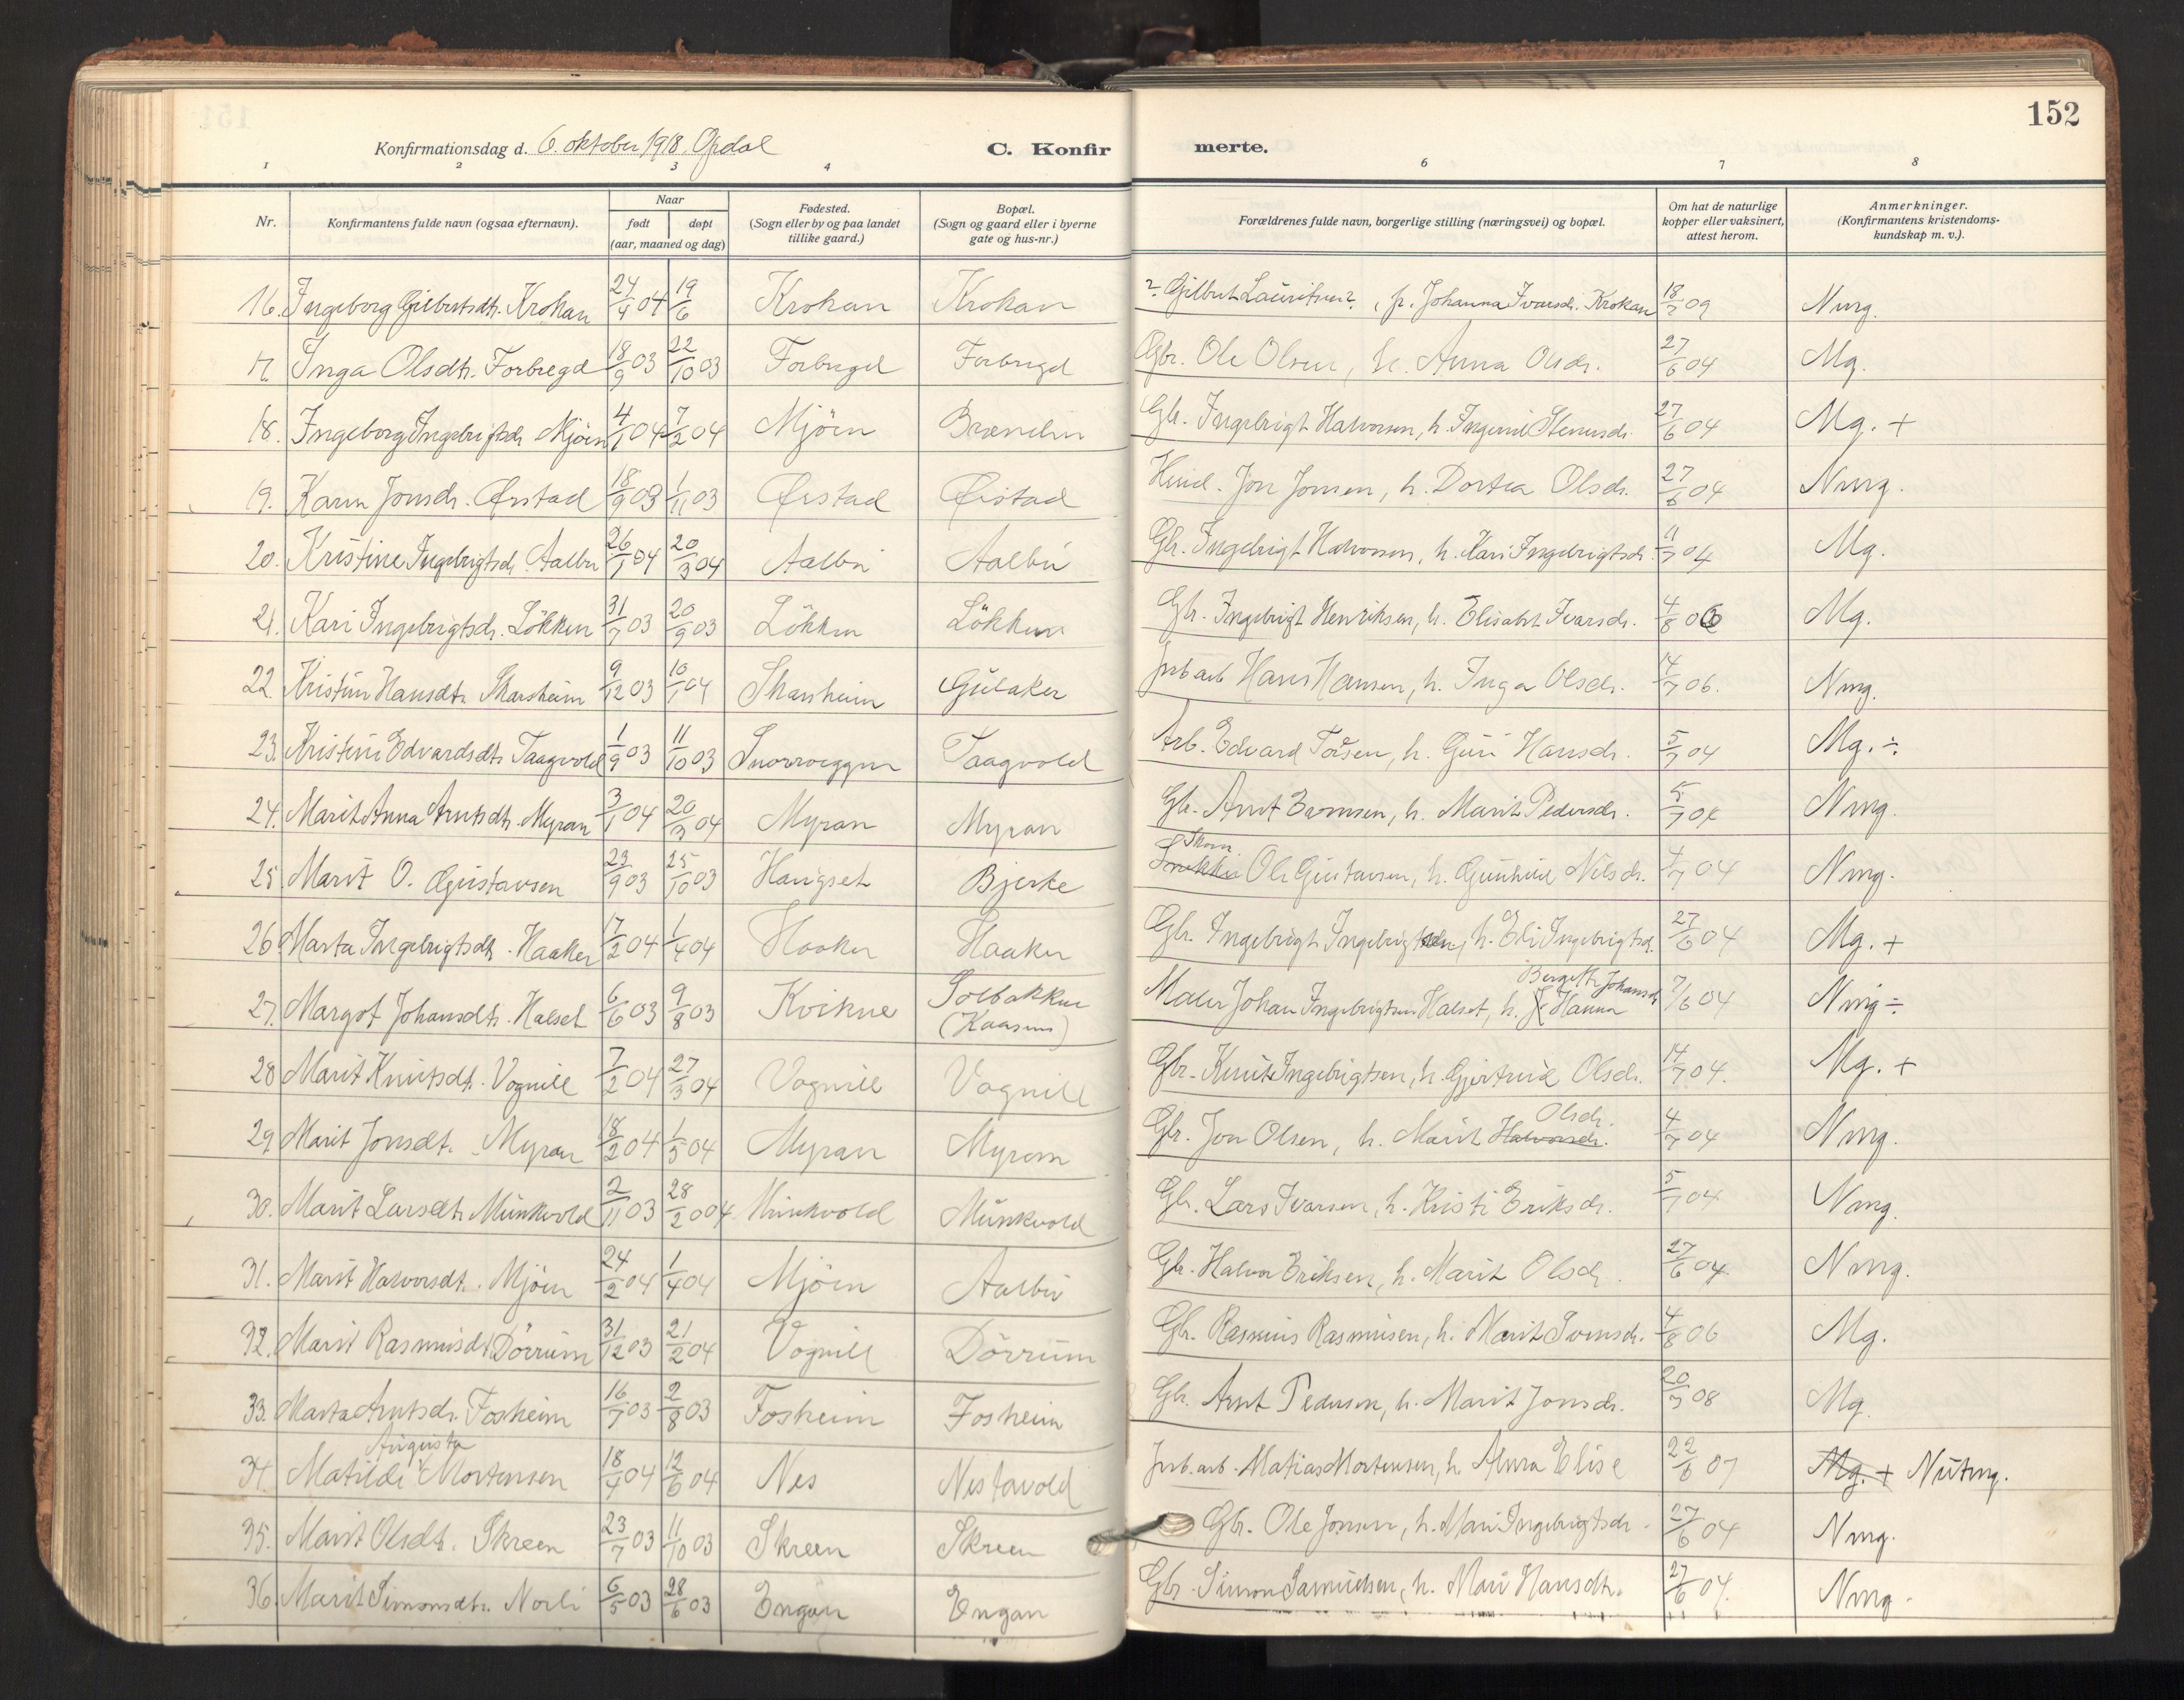 152
Konfirmationsdag d. 6. oktober 1918. Opdal
C. Konfirmerte.
1 2 3 4 6 7 8
Nr. | Konfirmantens fulde navn (ogsaa efternavn). | Naar født døpt (aar, maaned og dag) | Fødested. (Sogn eller by og paa landet tillike gaard.) | Bopæl. (Sogn og gaard eller i byerne gate og hus-nr.) | Forældrenes fulde navn, borgerlige stilling (næringsvei) og bopæl. | Om hat de naturlige kopper eller vaksinert, attest herom. | Anmerkninger. (Konfirmantens kristendoms-kundskap m. v.).
16. Ingeborg Gilbertsdtr. Krokan 24/4 04 19/6 Krokan Krokan ? Gilbert Lauritsen?, fr. Johanna Ivarsdr. Krokan 18/2 09 Nmg.
17. Inga Olsdtr. Forbregd 18/9 03 22/10 03 Forbregd Forbregd Gbr. Ole Olsen, h. Anna Olsdr. 27/6 04 Mg.
18. Ingeborg Ingebrigtsdr. Mjöen 4/1 04 7/2 04 Mjöen Brænden Gbr. Ingebrigt Halvorsen, h. Ingerid 27/6 04 Mg. +
19. Karen Jonsdr. Ørstad 18/9 03 1/11 03 Ørstad Ørstad Jon Jonsen, h. Dortea Olsdr. 27/6 04 Nmg.
20. Kristine Ingebrigtsdr. Aalbu 26/1 04 20/3 04 Aalbu Aalbu Gbr. Ingebrigt Halvorsen, h. Kari Ingebrigtsdr. 11/7 04 Mg.
21. Kari Ingebrigtsdr. Lökken 31/7 03 20/9 03 Lökken Lökken Gbr. Ingebrigt Henriksen, h. Elisabet Ivarsdr. 4/8 06 Mg.
22. Kristine Hansdtr. Skarsheim 9/12 03 10/1 04 Skarsheim Gulaker Jrb.arb. Hans Hansen, h. Inga Olsdr. 14/7 06. Nmg.
23. Kristine Edvardsdtr. Taagvold 1/9 03 11/10 03 Snorroeggen Taagvold Arb. Edvard Torsen, h. Guri Hansdr. 5/7 04 Mg. ÷
24. Marit Anna Arntsdtr. Myran 3/1 04 20/3 04 Myran Myran Gbr. Arnt Evensen, h. Marit Pedersdr. 5/7 04 Nmg.
25. Marit O. Gustavsen 23/9 03 25/10 03 Haugset Bjerke Skom. Ole Gustavsen, h. Gunhild Nilsdr. 4/7 04 Nmg.
26. Marta Ingebrigtsdtr. Haaker 17/2 04 1/4 04 Haaker Haaker Gbr. Ingebrigt Ingebrigtsen, h. Eli Ingebrigtsd. 27/6 04 Mg. +
27. Margot Johansdtr. Halset 6/6 03 9/8 03 Kvikne Solbakken (Kaasen) Maler Johan Ingebrigtsen Halset, h. J. Hanna Bergette Johansdr. 7/6 04 Nmg ÷
28. Marit Knutsdtr. Vognill 7/2 04 27/3 04 Vognill Vognill Gbr. Knut Ingebrigtsen, h. Gjertrud Olsdr. 14/7 04. Mg. +
29. Marit Jonsdt. Myran 18/2 04 1/5 04 Myran Myran Gbr. Jon Olsen, h. Marit Halvorsdr. Olsdr. 4/7 04 Nmg.
30. Marit Larsdtr. Munkvold 2/11 03 28/2 004 Munkvold Munkvold Gbr. Lars Ivarsen, h. Kristi Eriksdr. 5/7 04 Nmg.
31. Marit Halvorsdt. Mjöen 24/2 04 1/4 04 Mjöen Aalbu Gbr. Halvor Eriksen, h. Marit Olsdr. 27/6 04 Nmg.
32. Marit Rasmusdt. Dörrum 31/12 03 21/2 04 Vognill Dörrum Gbr. Rasmus Rasmusen, h. Marit Svensdr. 4/8 06 Mg.
33. Marta Arntsdr. Fosheim 16/7 03 2/8 03 Fosheim Fosheim Gbr. Arnt Pedersen, h. Marit Jonsdr. 20/3 08 Mg.
34. Matilde Augusta Mortensen 18/4 04 12/6 04 Nes Nestavold Jrb.arb. Matias Mortensen, h. Alma Elise 22/6 07 Mg. + Nutmg.
35. Marit Olsdtr. Skreen 23/7 03 11/10 03 Skreen Skreen Gbr. Ole Jonsen, h. Mari Ingebrigtsdr. 27/6 04 Nmg.
36. Marit Simonsdtr. Norli 6/5 03 28/6 03 Engan Engan Gbr. Simon Samuelsen, h. Mari Hansdtr. 27/6 04. Nmg.